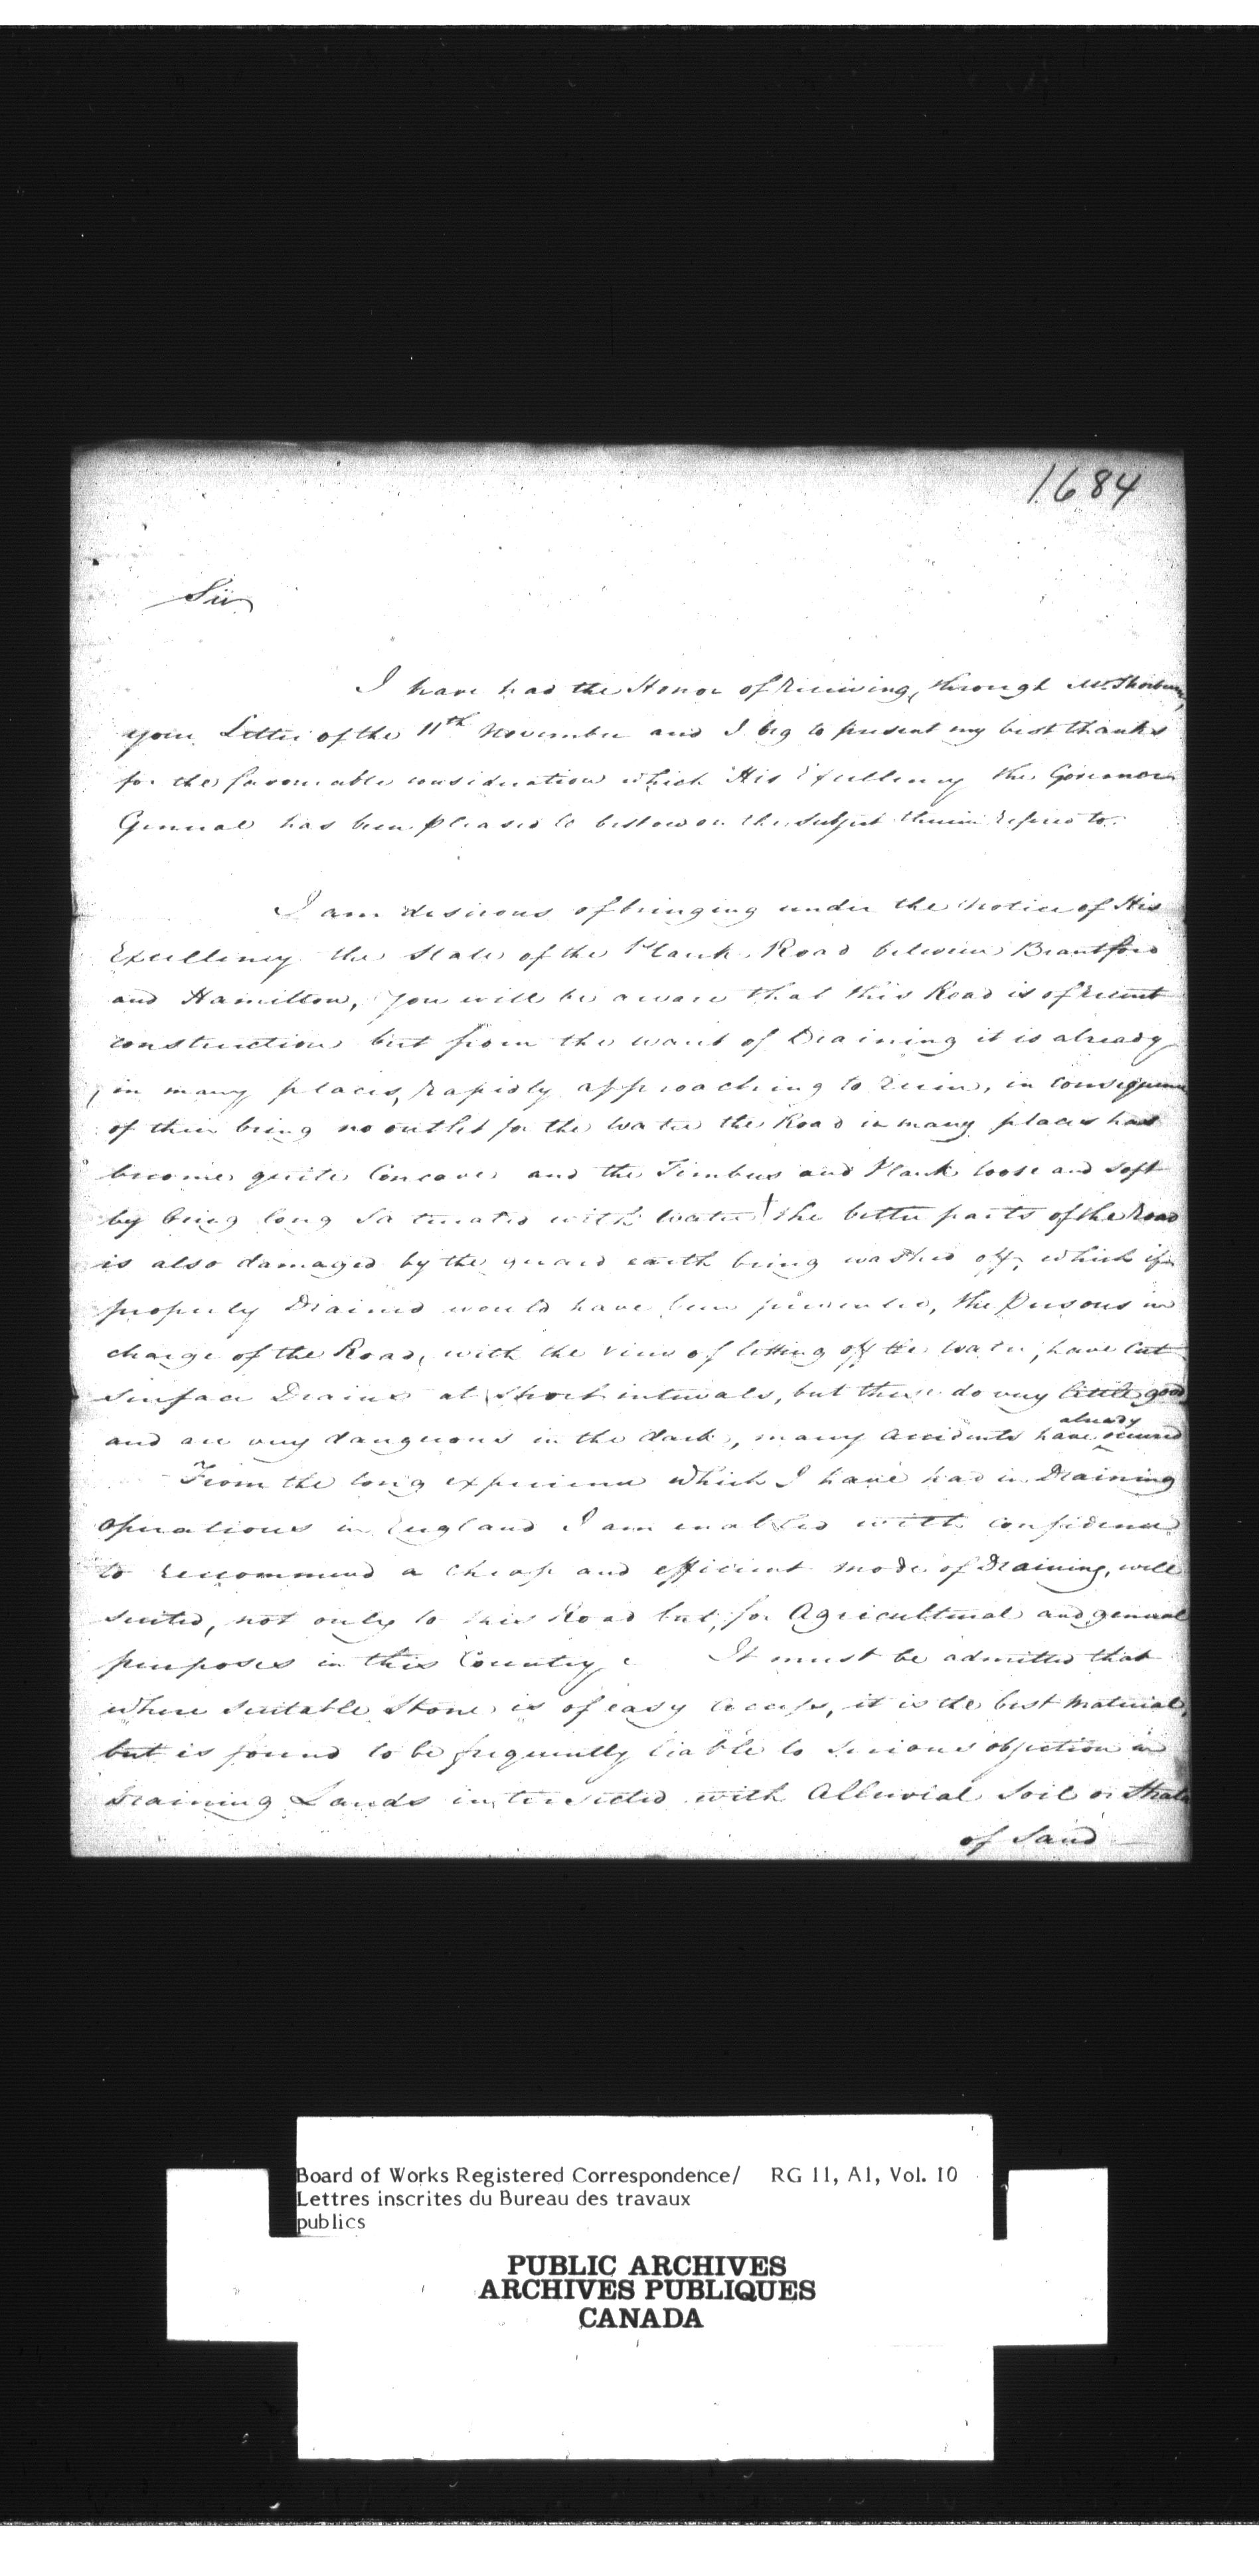 1684
Sir
I have had the Honor of receiving, through Mr. Thorburn,
your Letter of the 11th November and I beg to present my best thanks
for the favourable consideration which His Excellency the Governor
General has been pleased to bestow on the subject therein refered to.
I am desirous of bringing under the notice of His
Excellency the State of the Plank Road between Brantford
and Hamilton, you will be aware that this Road is of recent
construction but from the want of Draining it is already
in many places, rapidly approaching to ruin, in consequence
of their being no outlet for the water the Road in many places has
become quite Concave and the Timbers and Plank loose and soft
by being long saturated with water! the better parts of the Road
is also damaged by the guard earth being washed off, which if
properly Drained would have been prevented, the Persons in
charge of the Road, with the view of letting off the water, have Cut
surface Drains at short intervals, but these do very little good
already
and are very dangerous in the dark, many accidents have occured
From the long experience which I have had in Draining
operations in England I am enabled with confidence
to recommend a cheap and efficient mode of Draining, well
suited, not only to this Road but, for Agricultural and general
purposes in this Country. It must be admitted that
where suitable Stone is of easy access, it is the best Material,
but is found to be frequently liable to serious objection in
Draining Lands intersected with Alluvial Soil or Strata
of Sand
Board of Works Registered Correspondence/ RG 11, A1, Vol. 10
Lettres inscrites du Bureau des travaux
publics
PUBLIC ARCHIVES
ARCHIVES PUBLIQUES
CANADA